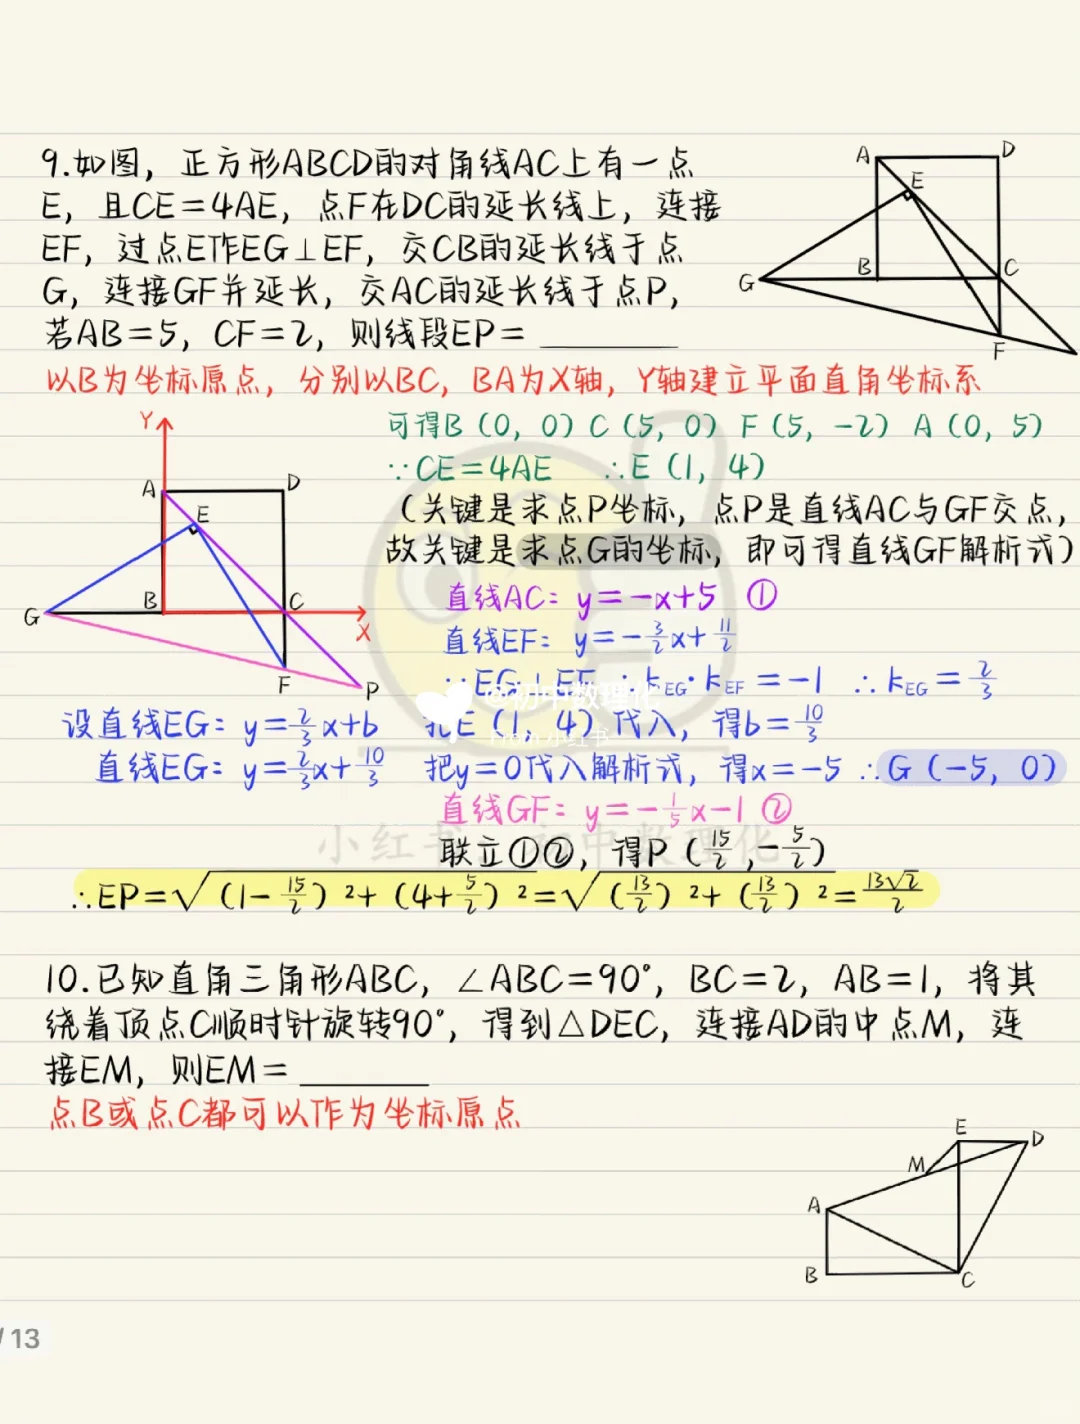 9.如图，正方形ABCD的对角线AC上有一点
E，且CE=4AE，点F在DC的延长线上，连接
EF，过点E作EG⊥EF，交CB的延长线于点
G，连接GF并延长，交AC的延长线于点P，
若AB=5，CF=2，则线段EP= ________
A
D
E
B
C
G
F
以B为坐标原点，分别以BC，BA为X轴，Y轴建立平面直角坐标系
Y
A
D
E
B
C
G
X
F
P
可得B（0，0）C（5，0）F（5，-2）A（0，5）
∵CE=4AE ∴E（1，4）
（关键是求点P坐标，点P是直线AC与GF交点，
故关键是求点G的坐标，即可得直线GF解析式）
直线AC：y=-x+5 ①
直线EF：y=-3/2x+11/2
∵EG⊥EF ∴kEG·kEF=-1 ∴kEG=2/3
@初中数理化
From 小红书
设直线EG：y=2/3x+b 把E（1，4）代入，得b=10/3
直线EG：y=2/3x+10/3 把y=0代入解析式，得x=-5 ∴G（-5，0）
直线GF：y=-1/5x-1 ②
小红书：初中数理化
联立①②，得P（15/2,-5/2）
∴EP=√（1-15/2）²+（4+5/2）²=√（13/2）²+（13/2）²=13√2/2
10.已知直角三角形ABC，∠ABC=90°，BC=2，AB=1，将其
绕着顶点C顺时针旋转90°，得到△DEC，连接AD的中点M，连
接EM，则EM= ________
点B或点C都可以作为坐标原点
E
D
M
A
B
C
/13